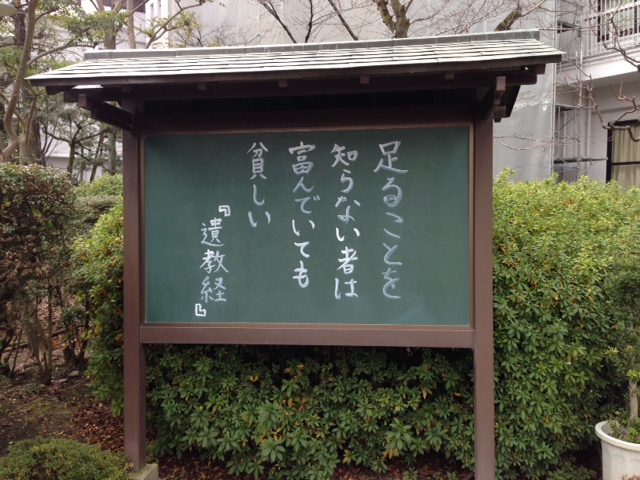 足ることを
知らない者は
富んでいても
貧しい
『遺教経』